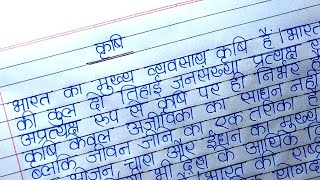 कृषि
भारत का मुख्य व्यवसाय कृषि हैं। भारत
की कुल दो तिहाई जनसंख्या प्रत्यक्ष
अप्रत्यक्ष रूप से कृषि पर ही निर्भर है
कृषि केवल अजीविका का साधन नहीं
ब्लकि जीवन जीने का एक तरीका
भोजन, चारा और ईंधन का मुख्य
के आर्थिक